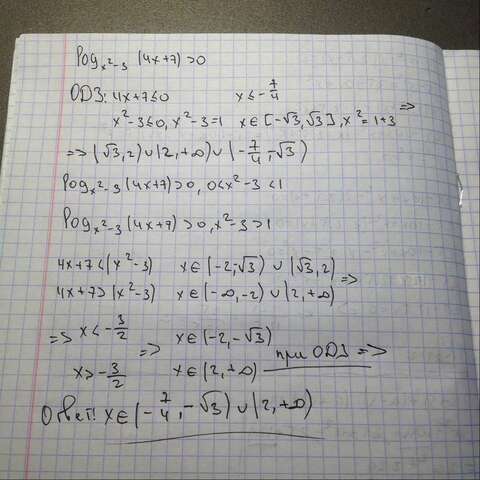 log_{x²-3} (4x+7) > 0
ОДЗ: 4x+7≤0 x ≤ -7/4
x²-3≤0, x²-3=1 x∈[-√3,√3], x²=1+3 =>
=> (√3,2)∪(2,+∞)∪(-7/4,-√3)
log_{x²-3} (4x+7)>0, 0<x²-3<1
log_{x²-3} (4x+7)>0, x²-3>1
4x+7<(x²-3) x∈(-2,-√3)∪(√3,2) =>
4x+7>(x²-3) x∈(-∞,-2)∪(2,+∞)
=> x<-3/2 => x∈(-2,-√3)
x>-3/2 x∈(2,+∞) при ОДЗ =>
Ответ: x∈(-7/4,-√3)∪(2,+∞)